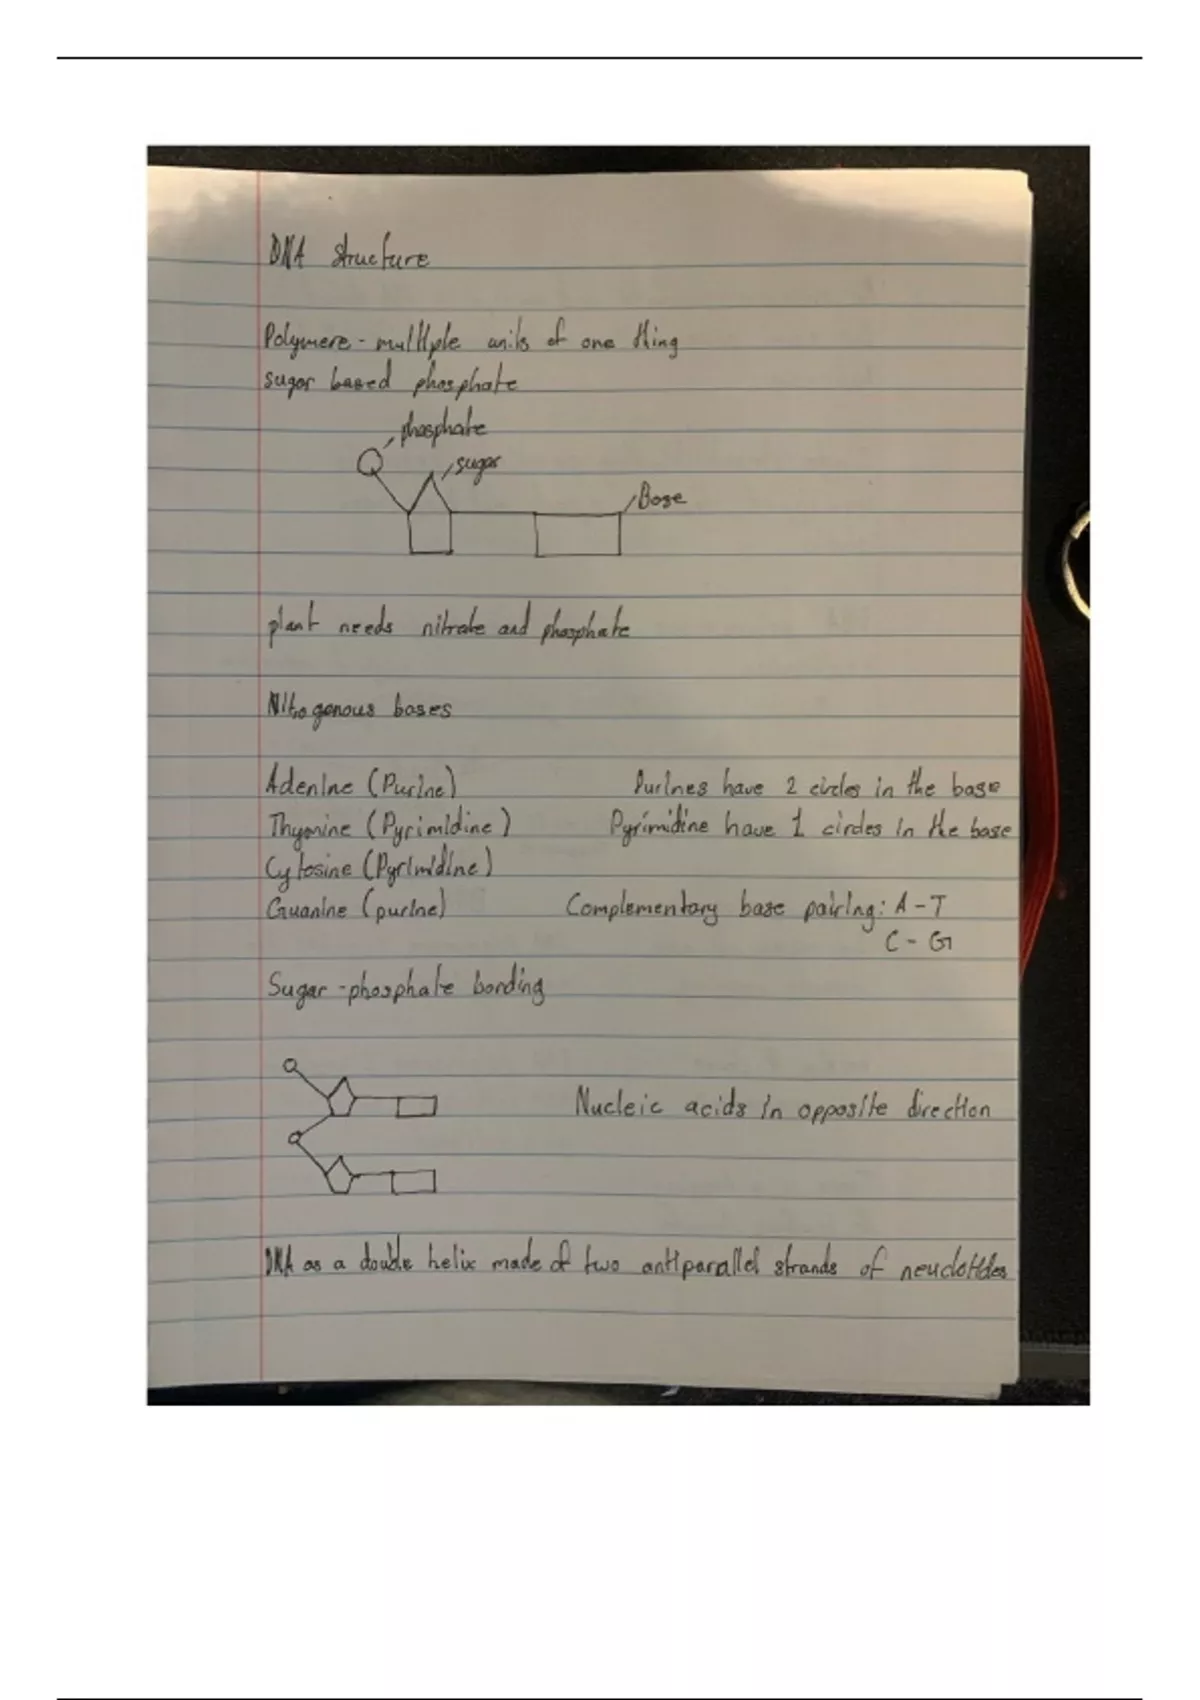 DNA structure
Polymere - multiple units of one thing
sugar based phosphate
phosphate
sugar
Base
plant needs nitrate and phosphate
Nitrogenous bases
Adenine (Purine) Purines have 2 circles in the base
Thymine (Pyrimidine) Pyrimidine have 1 circles in the base
Cytosine (Pyrimidine)
Guanine (purine) Complementary base pairing: A - T
C - G
Sugar - phosphate bonding
Nucleic acids in opposite direction
DNA as a double helix made of two antiparallel strands of neuclotides